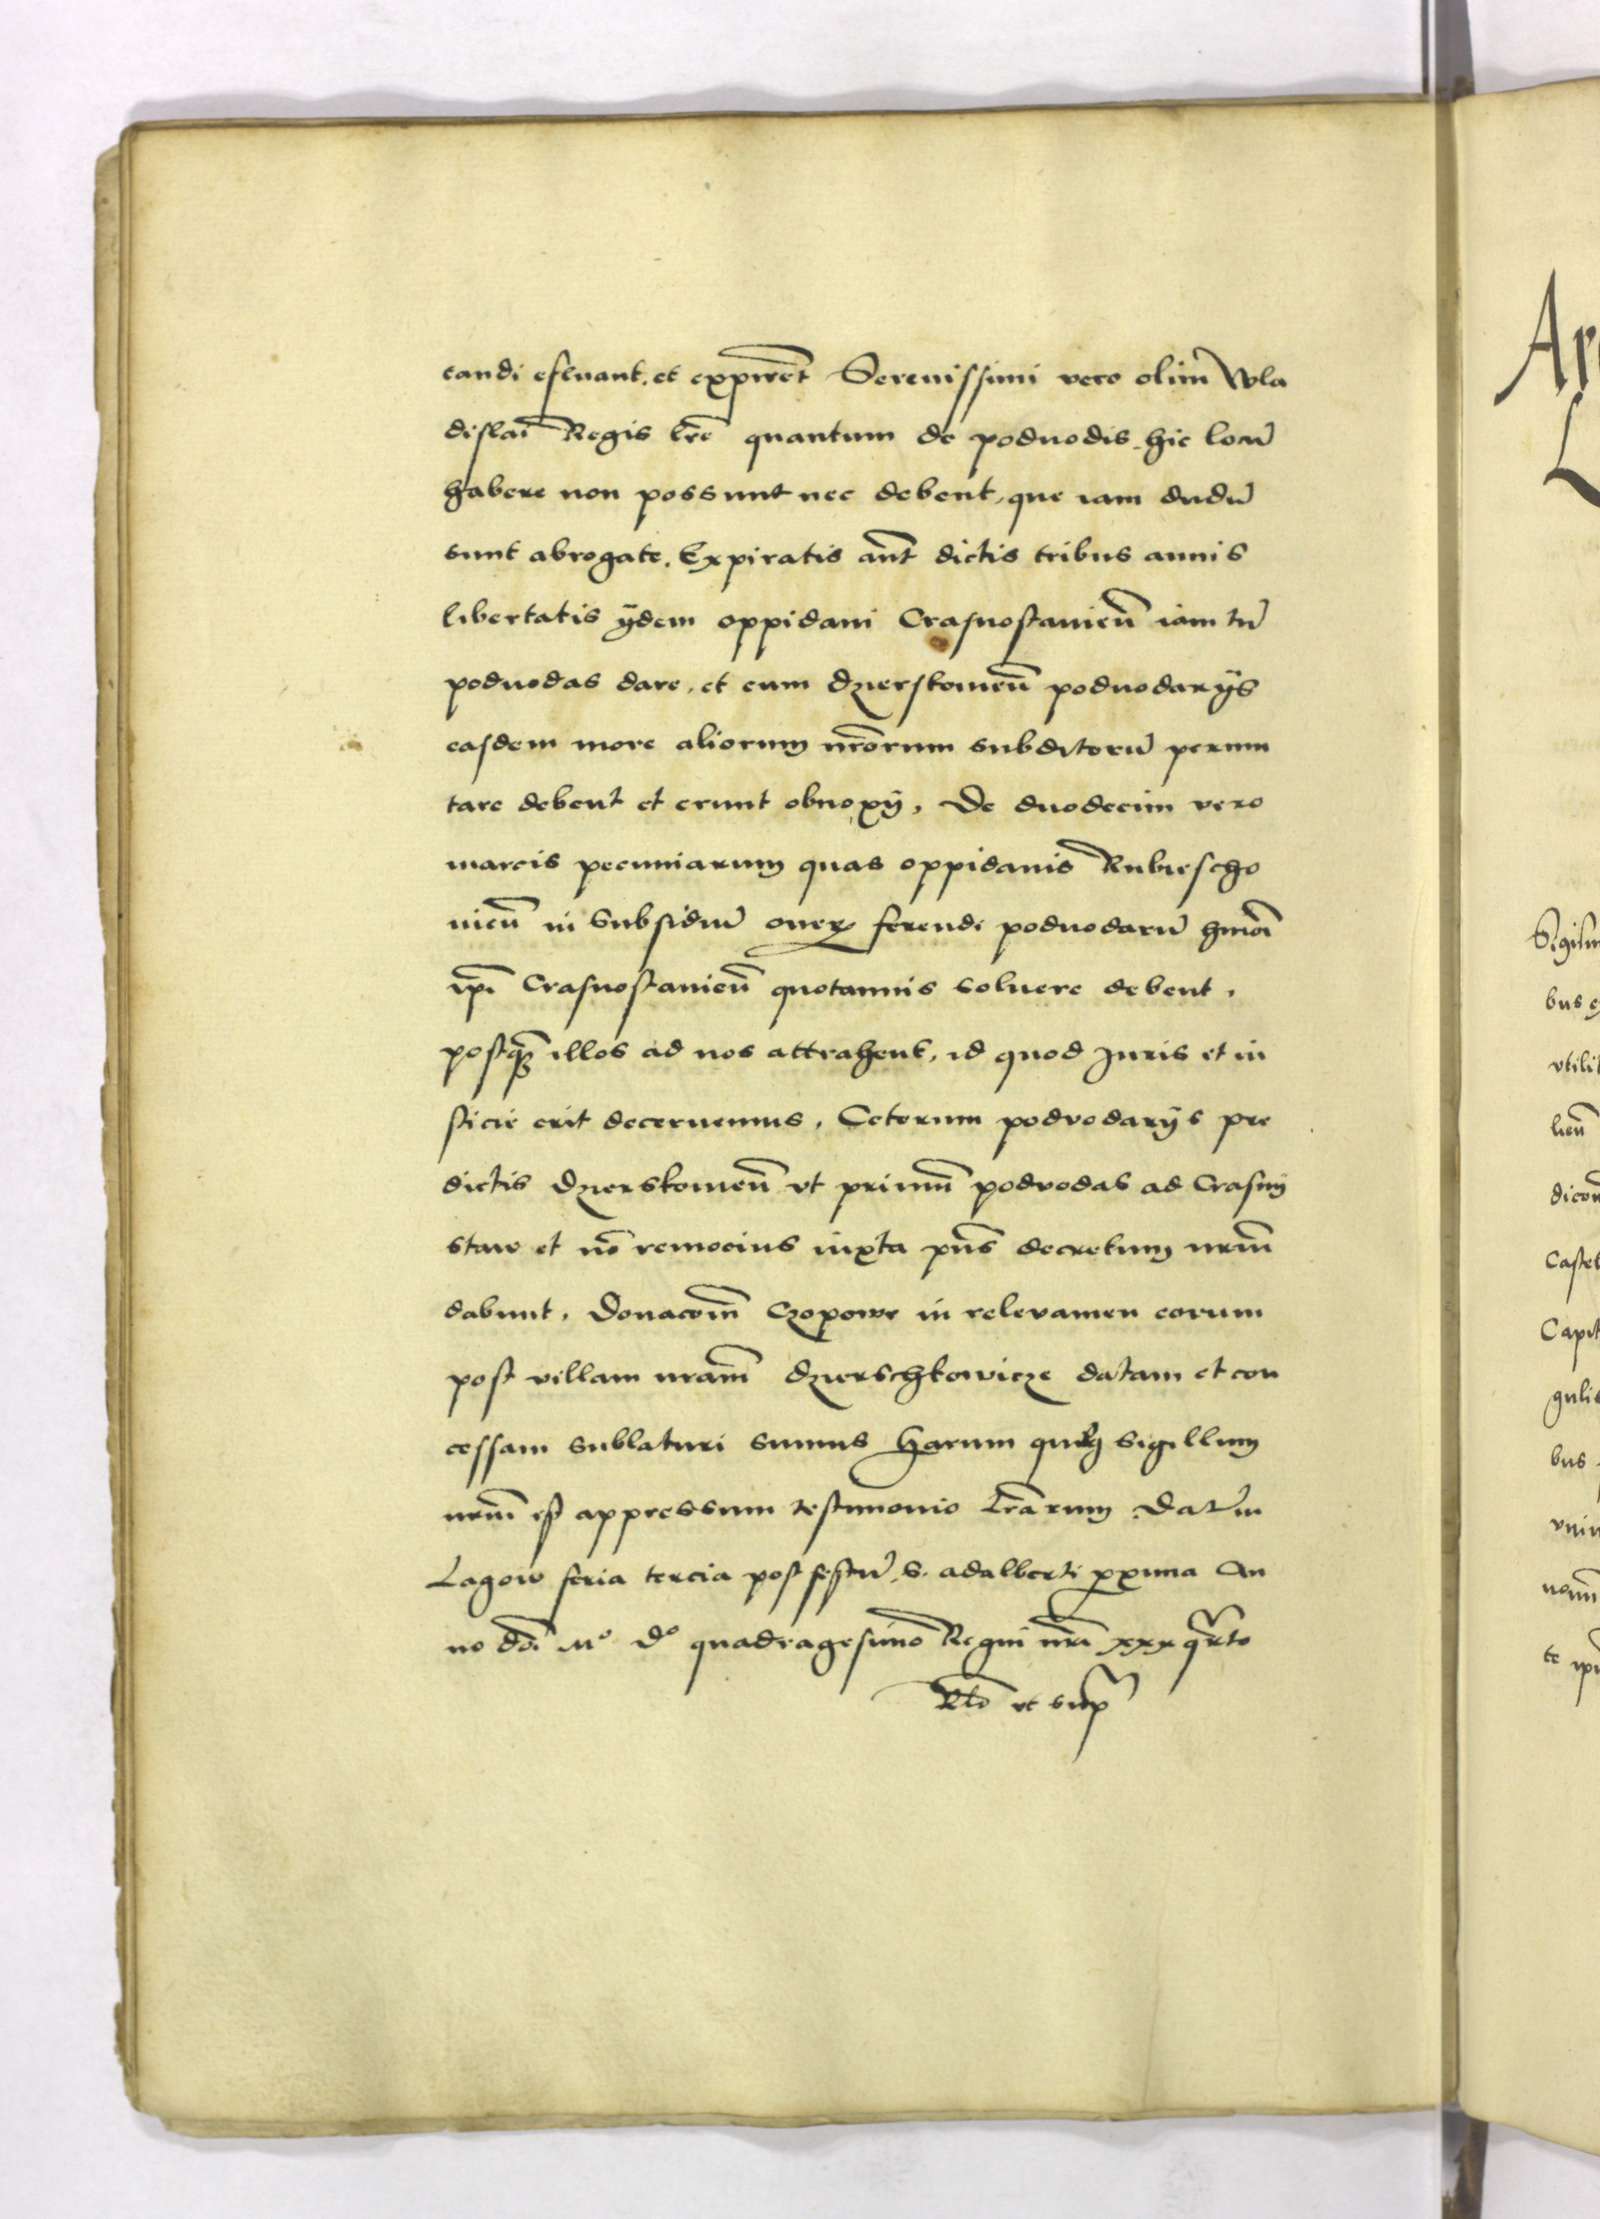 candi efluant, et expirent Serenissimi vero olim Wla
dislai Regis lrē quantum de poduodis hic locū
habere non possunt nec debent, que iam dudū
sunt abrogate. Expiratis aūt dictis tribus annis
libertatis ijdem oppidani Crasnostavieñ iam tū
poduodas dare, et cum dzierskowieñ poduodarijs
easdem more aliorum nrōrum subditorū permu
tare debent et erunt obnoxij. De duodecim vero
marcis pecuniarum quas oppidanis Rubiescho
vieñ in subsidiū oner ferendi poduodarū hmōi
ipī Crasnostavieñ quotannis soluere debent,
postq̃ illos ad nos attrahent, id quod Juris et iu
sticie erit decernemus. Ceterum podvodarijs pre
dictis dzierskowieñ vt primum podvodas ad Crasny
staw et nō remocius iuxta pñs decretum nrūm
dabunt. Donacōem Czopowe in relevamen eorum
post villam nrām dzierschkowicze datam et con
cessam sublaturi sumus Harum quib; sigillum
nrūm est appressum testimonio lrārum. Datum
Lagow feria tercia post festū s. adalberti pxima An
no dōi Mº Dº quadragesimo Regni nrī xxx qrto
Rlō vt sup
Sigism
bus
vtilit
lieñ
dicom
Castel
Capit
gulis
bus
te